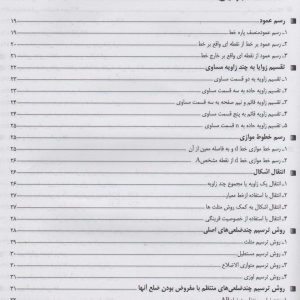 رسم عمود ۱۹
۱ـ رسم عمودمنصف پاره خط ۱۹
۲ـ رسم عمود بر خط از نقطه ای واقع بر خط ۲۰
۳ـ رسم عمود از نقطه ای واقع بر خارج خط ۲۱
تقسیم زوایا به چند زاویه مساوی ۲۲
۱ـ تقسیم زاویه به دو قسمت مساوی ۲۲
۲ـ تقسیم زاویه حاده به سه قسمت مساوی ۲۲
۳ـ تقسیم زاویه قائم و نیم صفحه به سه قسمت مساوی ۲۴
۴ـ تقسیم زاویه قائم به پنج قسمت مساوی ۲۴
۵ـ تقسیم زاویه حاده به n قسمت مساوی ۲۵
رسم خطوط موازی ۲۵
۱ـ رسم خط موازی خط d و به فاصله معین از آن ۲۵
۲ـ رسم خط موازی خط d از نقطه مشخص A ۲۶
انتقال اشکال ۲۶
۱ـ انتقال یک زاویه یا مجموع چند زاویه ۲۶
۲ـ انتقال با استفاده از خط معیار ۲۷
۳ـ انتقال اشکال به کمک روش مثلث ها ۲۷
۴ـ انتقال با استفاده از خصوصیت قرینگی ۲۸
روش ترسیم چندضلعی‌های اصلی ۲۸
۱ـ روش ترسیم مثلث ۲۹
۲ـ روش ترسیم مستطیل ۳۰
۳ـ روش ترسیم متوازی الاضلاع ۳۰
۴ـ روش ترسیم لوزی ۳۱
روش ترسیم چندضلعی‌های منتظم با مفروض بودن ضلع آنها ۳۱